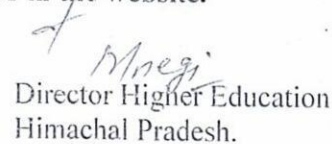 the website.
Director Higher Education
Himachal Pradesh.